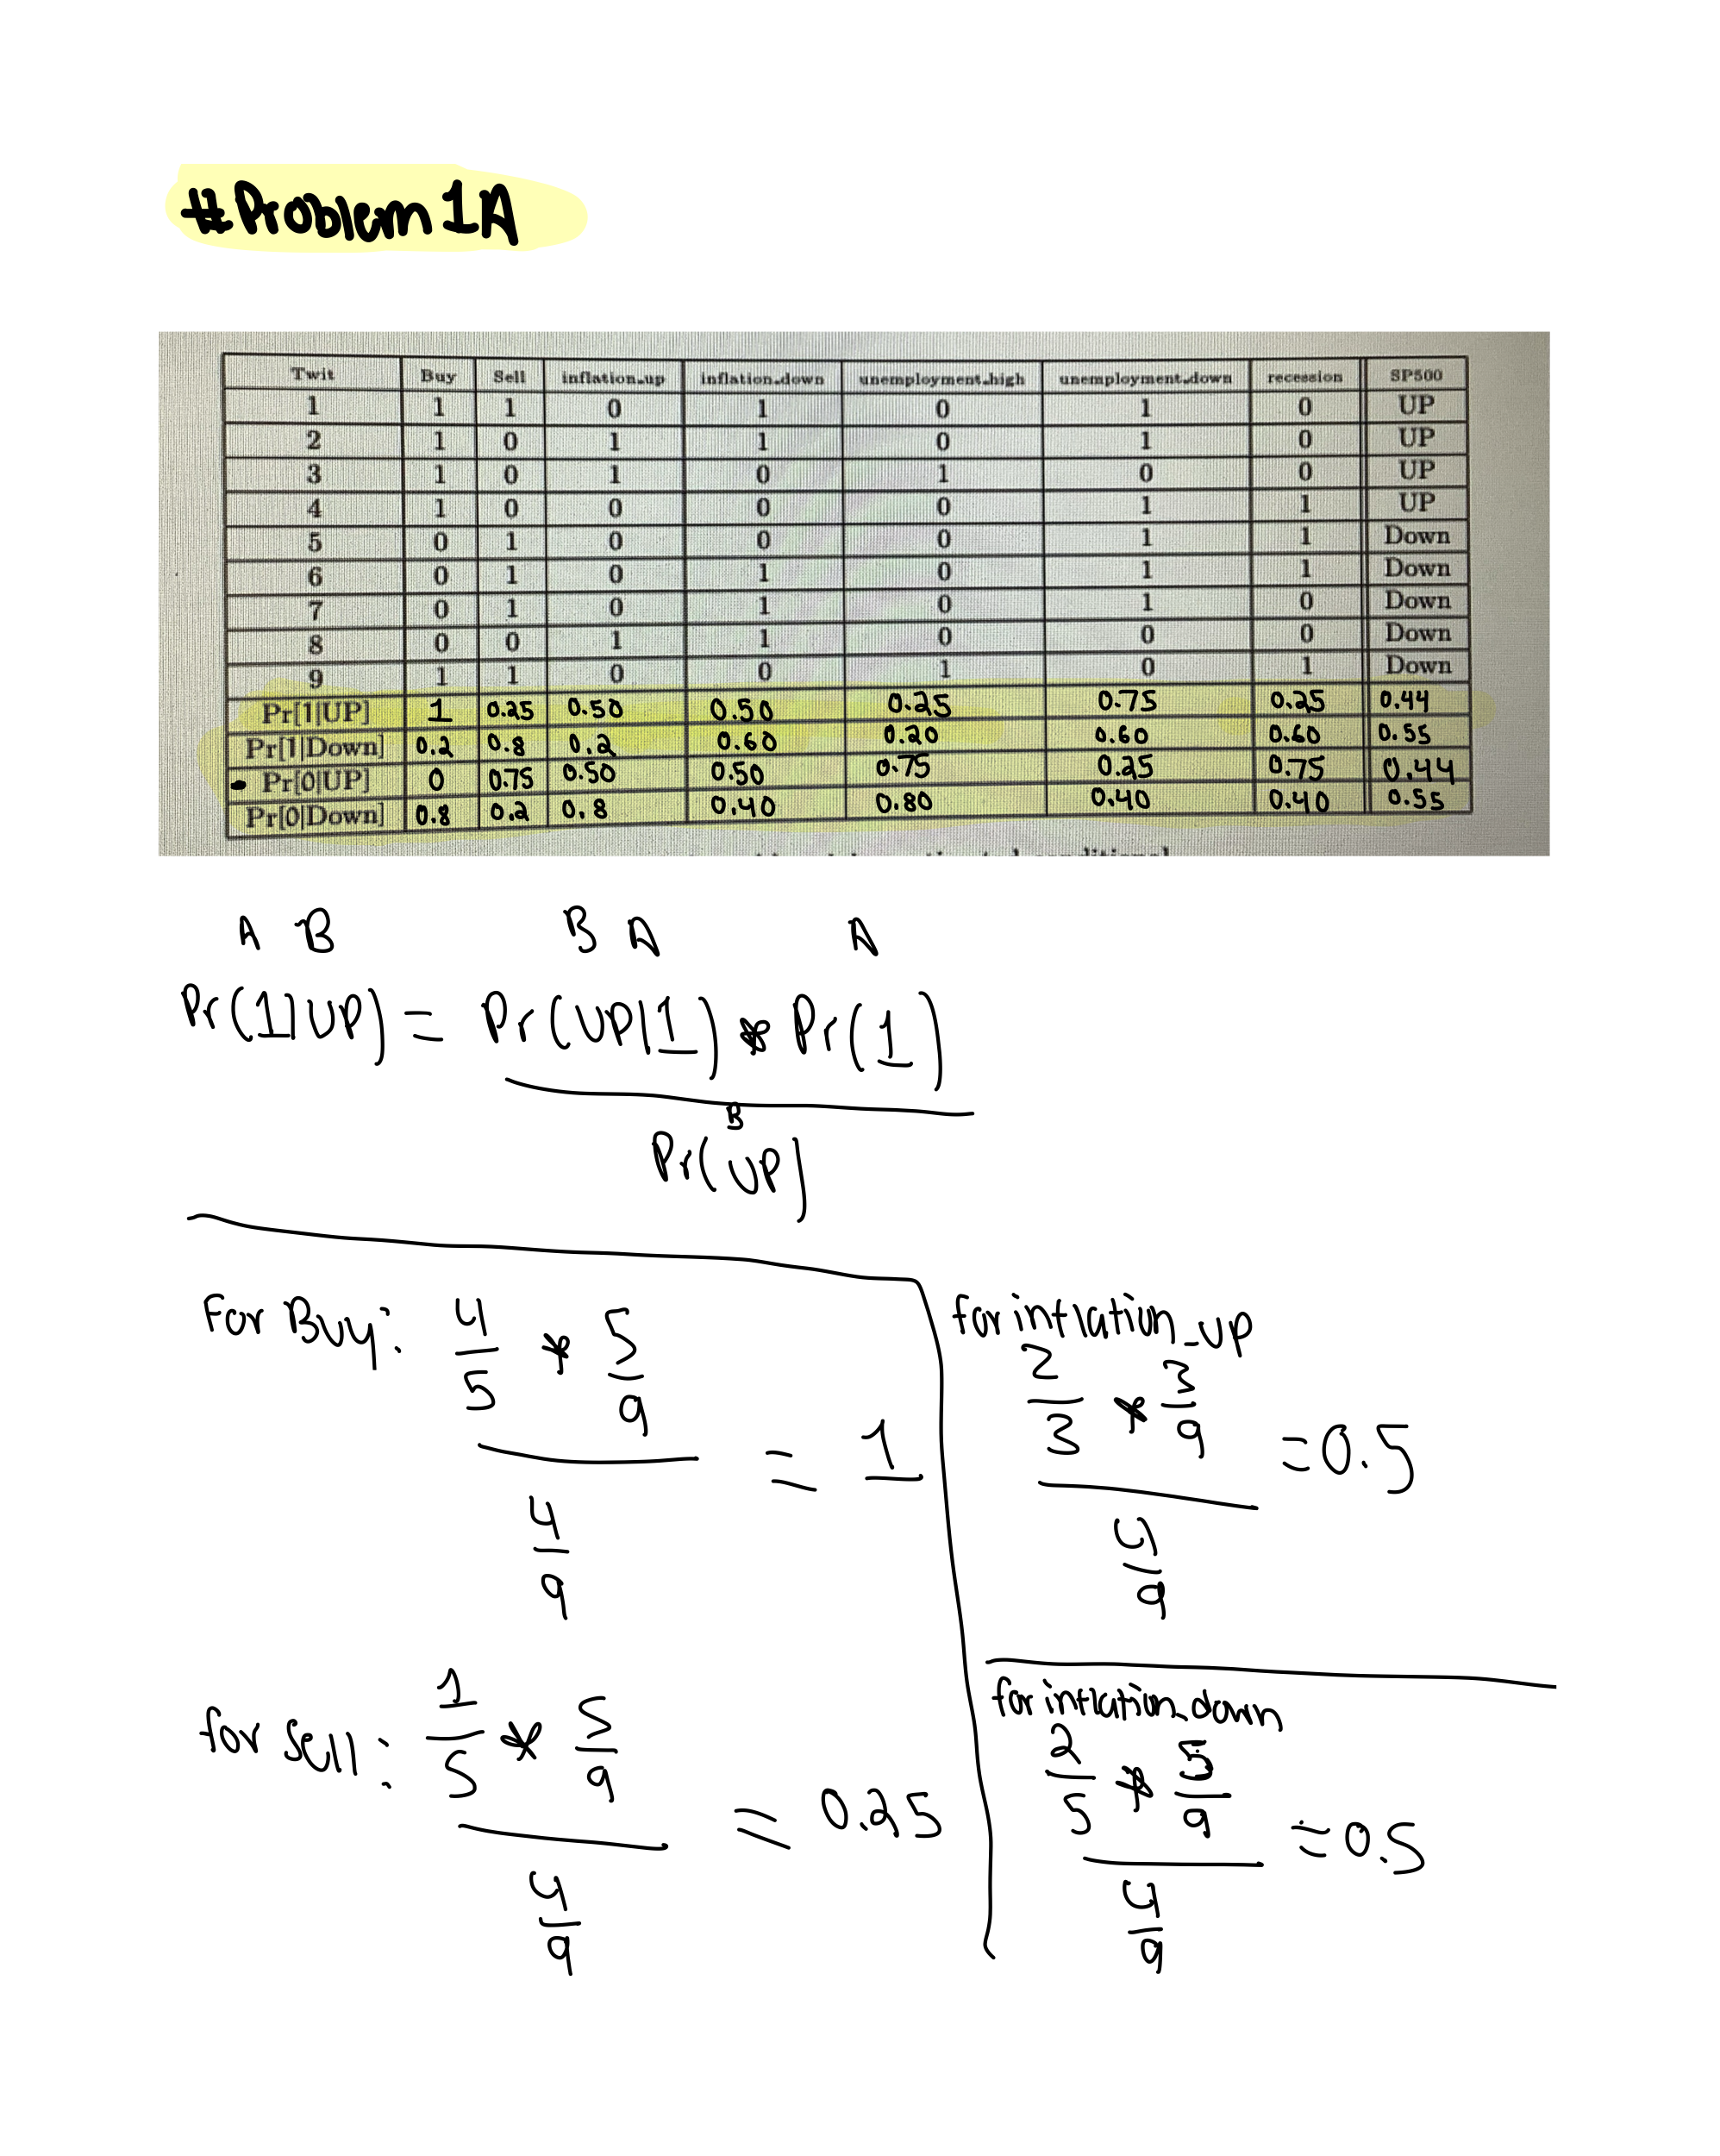 #Problem 1A
Twit Buy Sell inflation_up inflation_down unemployment_high unemployment_down recession SP500
1 1 1 0 1 0 1 0 UP
2 1 0 1 1 0 1 0 UP
3 1 0 1 0 1 0 0 UP
4 1 0 0 0 0 1 1 UP
5 0 1 0 0 0 1 1 Down
6 0 1 0 1 0 1 1 Down
7 0 1 0 1 0 1 0 Down
8 0 0 1 1 0 0 0 Down
9 1 1 0 0 1 0 1 Down
Pr[1|UP] 1 0.25 0.50 0.50 0.25 0.75 0.25 0.44
Pr[1|Down] 0.2 0.8 0.2 0.60 0.20 0.60 0.60 0.55
Pr[0|UP] 0 0.75 0.50 0.50 0.75 0.25 0.75 0.44
Pr[0|Down] 0.8 0.2 0.8 0.40 0.80 0.40 0.40 0.55
A B B A A
Pr(1|UP) = Pr(UP|1) * Pr(1)
B
Pr(UP)
For Buy: 4/5 * 5/9
4/9
= 1
for sell: 1/5 * 5/9
5/9
= 0.25
for inflation_up
2/3 * 3/9
5/9
= 0.5
for inflation_down
2/5 * 5/9
5/9
= 0.5